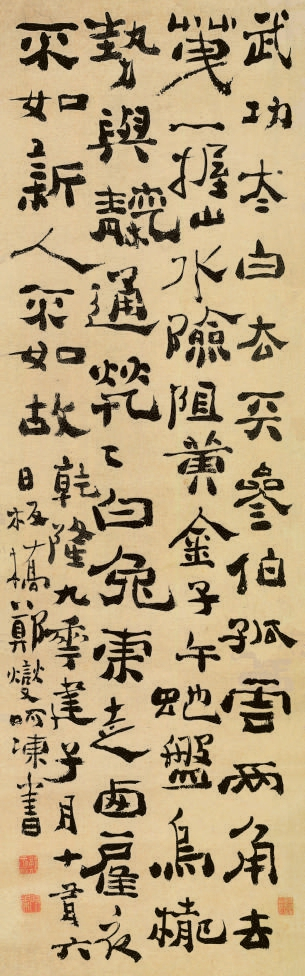 武功太白去天參伯孤雲兩角去
天一握山水險阻黃金子午虵盤烏櫳
埶與靝通煢〻白兔東走西雇衣
不如新人不如故乾隆九年建子月十有六
日板橋鄭燮呵凍書